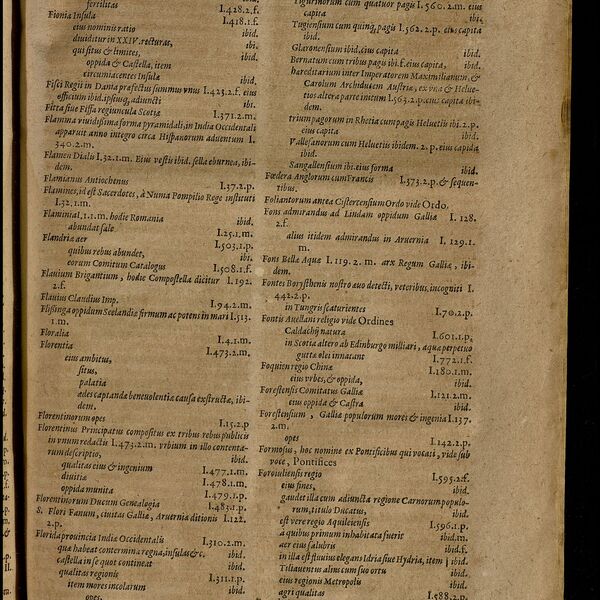 fertilitas I.428.2.f.
Fionia Insula I.418.1.f.
eius nominis ratio ibid.
diuiditur in XXIV. recturas, ibi.
qui situs & limites, ibid.
oppida & Castella, item
circumiacentes Insulæ ibid.
Fisci Regii in Dania præfectus summus vnus I.423.2.f. eius
officium ibid. ipsiusq́; adiuncti ibi.
Fitta siue Fiffa regiuncula Scotiæ I.371.2.m.
Flamma viuidißima forma pyramidali, in India Occidentali
apparuit anno integro circa Hispanorum aduentum I.
340.2.m.
Flamen Dialis I.32.1.m. Eius vestis ibid. sella eburnea, ibi-
dem.
Flamianus Antiochenus I.37.2.p.
Flamines, id est Sacerdotes, à Numa Pompilio Rege instituti
I.32.1.m.
Flaminia I.1.1.m. hodie Romania ibid.
abundat sale I.25.1.m.
Flandriæ aer I.503.1.p.
quibus rebus abundet, ibi.
eorum Comitum Catalogus I.508.1.f.
Flauium Brigantium, hodie Compostella dicitur I.192.
2.f.
Flauius Claudius Imp. I.94.2.m.
Flißinga oppidum Seelandiæ firmum ac potens in mari I.513.
1.m.
Floralia I.4.1.m.
Florentia I.473.2.m.
eius ambitus,
situs,
palatia
ædes captandæ beneuolentiæ causa exstructæ, ibi-
dem.
Florentinorum opes I.15.2.p
Florentinus Principatus compositus ex tribus rebuspublicis
in vnum redactis I.473.2.m. vrbium in illo contenta-
rum descriptio, ibid.
qualitas eius & ingenium I.477.1.m.
diuitiæ I.478.1.m.
oppida munita I.479.1.p.
Florentinorum Ducum Genealogia I.483.1.p.
S. Flori Fanum, ciuitas Galliæ, Aruerniæ ditionis I.122.
2.p.
Florida prouincia Indiæ Occidentalis I.310.2.m.
qua habeat contermina regna, insulas &c. ibid.
castella in se quot contineat ibid.
qualitas regionis I.311.1.p.
item mores incolarum ibid.
opes.
Tigurinorum cum quatuor pagis I.560.2.m. eius
capita ibi.
Tugiensium cum quinq; pagis I.562.2.p. eius capita
ibid.
Glaronensium ibid. eius capita ibid.
Bernatum cum tribus pagis ibi. f. eius capita, ibid.
hæreditarium inter Imperatorem Maximilianum, &
Carolum Archiducem Austriæ, ex vna & Helue-
tios altera parte initum I.563.2.p. eius capita ibi-
dem.
trium pagorum in Rhetia cum pagis Heluetiis ibi. 2.p.
eius capita ibid.
Vallesanorum cum Heluetiis ibidem. 2.p. eius capida
ibid.
Sangallensium ibi. eius forma ibid.
Fœdera Anglorum cum Francis I.373.2.p. & sequen-
tibus.
Foliantorum antea Cistertensium Ordo vide Ordo.
Fons admirandus ad Lindam oppidum Galliæ I. 128.
2.f.
alius itidem admirandus in Aruernia I. 129.1.
m.
Fons Bellæ Aquæ I.119.2.m. arx Regum Galliæ, ibi-
dem.
Fontes Borysthenis nostro æuo detecti, veteribus, incogniti I.
442.2.p.
in Tungris scaturientes I.70.2.p.
Fontis Auellani religio vide Ordines
Caldachij natura I.601.1.p.
in Scotia altero ab Edinburgo milliari, aquæ perpetuo
guttæ olei innatant I.772.1.f.
Foquien regio Chinæ I.180.1.m.
eius vrbes, & oppida, ibid.
Forestensis Comitatus Galliæ I.121.2.m.
eius oppida & Castra ibid.
Forestensium, Galliæ populorum mores & ingenia I.137.
2.m.
opes I.142.2.p.
Formosus, hoc nomine ex Pontificibus qui vocati, vide sub
voce, Pontifices
Foroiuliensis regio I.595.2.f.
eius fines, ibid.
gaudet illa cum adiuncta regione Carnorum populo-
rum, titulo Ducatus, ibid.
est vere regio Aquileiensis I.596.1.p.
a quibus primum inhabitata fuerit ibid.m.
aer eius salubris ibid.f.
in illa est fluuius elegans Idria siue Hydria, item ibid.
Tiliauentus alius cum suo ortu ibid.
eius regionis Metropolis ibid.
agri qualitas I.588.2.p.